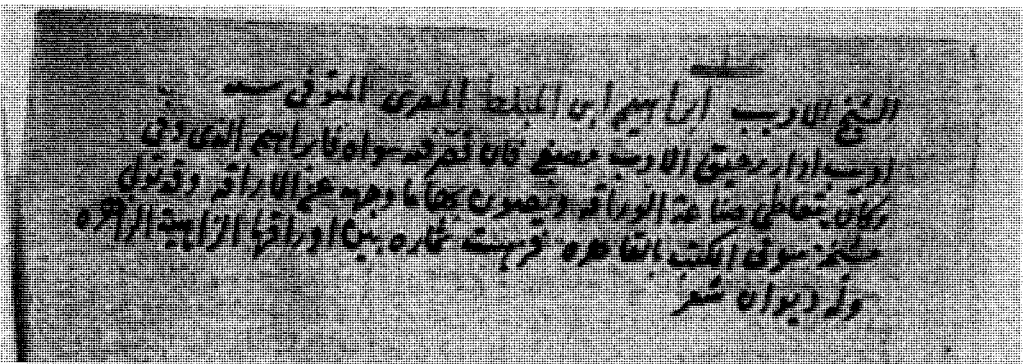 الشيخ الاديب ابراهيم ابن المبلط المصري المتوفى سنة
اديب ادار رحيق الادب مصفى فان قصر فيه سواه فابراهيم الذي وفى
وكان يتعاطى صناعة الوراقه ويصون بها ماء وجهه عن الاراقه وقد تولى
مشيخة سوق الكتب بالقاهره فزهت ثماره بين اوراقها الزاهية الزاهره
وله ديوان شعر